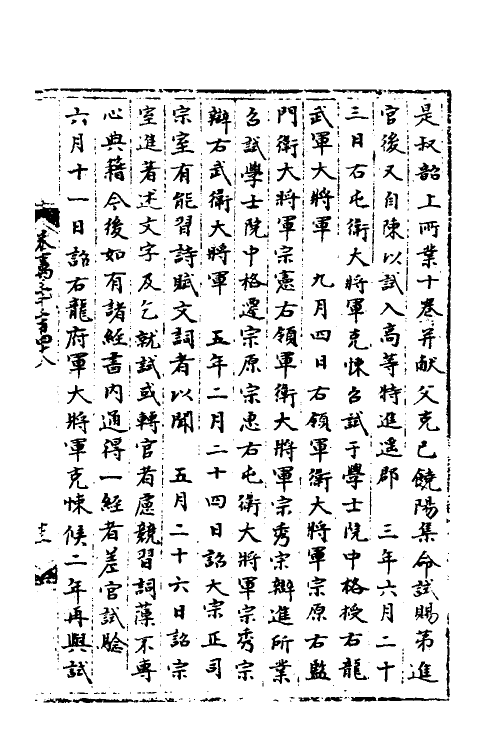 是叔韶上所業十卷并献父克己饒陽集命試賜第進
官後又自陳以試入高等特進遥郡　三年六月二十
三日右屯衛大將軍克悚召試于學士院中格授右龍
武軍大將軍　九月四日右領軍衛大將軍宗原右監
門衛大將軍宗憲右領軍衛大將軍宗秀宗辯進所業
召試學士院中格遷宗原宗惠右屯衛大將軍宗秀宗
辯右武衛大將軍　五年二月二十四日詔大宗正司
宗室有能習詩賦文詞者以聞　五月二十六日詔宗
室進著述文字及乞就試或轉官者慮競習詞藻不專
心典籍今後如有諸經書內通得一經者差官試驗
六月十一日詔右龍府軍大將軍克悚候二年再與試
卷一萬二千一百四十八